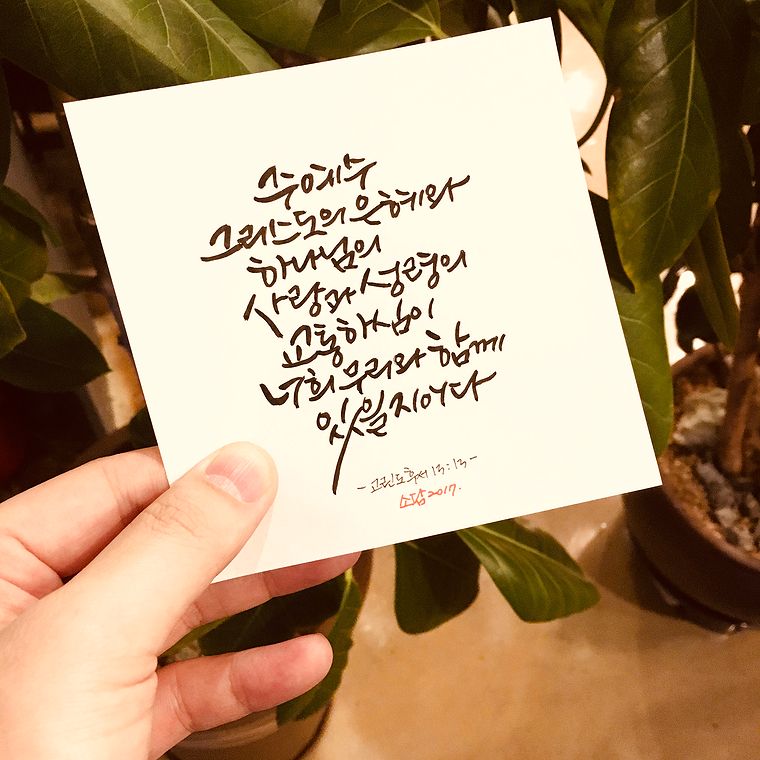 주 예수
그리스도의 은혜와
하나님의
사랑과 성령의
교통하심이
너희 무리와 함께
있을지어다
- 고린도후서 13:13 -
소담 2017.